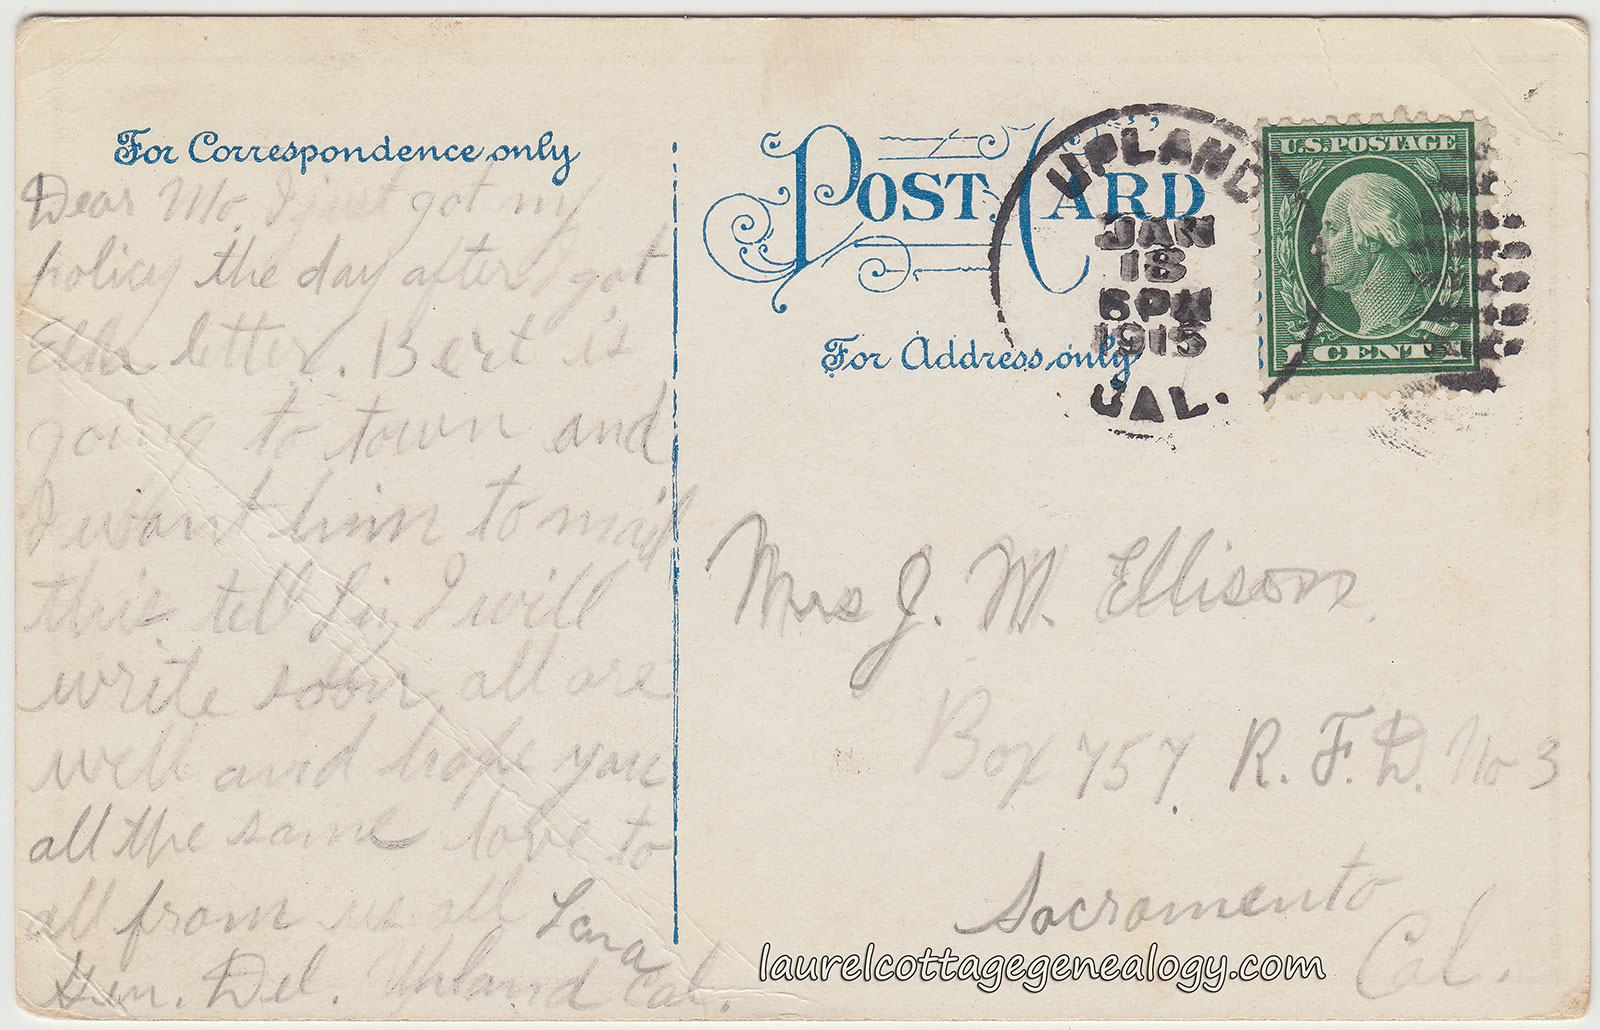 For Correspondence only
Dear Mo. I just got my
policy the day after I got
letter. Bert is
going to town and
I want him to mail
this. tell I will
write soon, all are
well and hope you
all the same love to
all from us all Lena
Gen. Del. Upland Cal.
POST CARD
For Address only
UPLAND
JAN
18
6 PM
1915
CAL.
U.S. POSTAGE
1 CENT 1
Mrs J. M. Ellison.
Box 757, R. F. D. No 3
Sacramento
Cal.
laurelcottagegenealogy.com